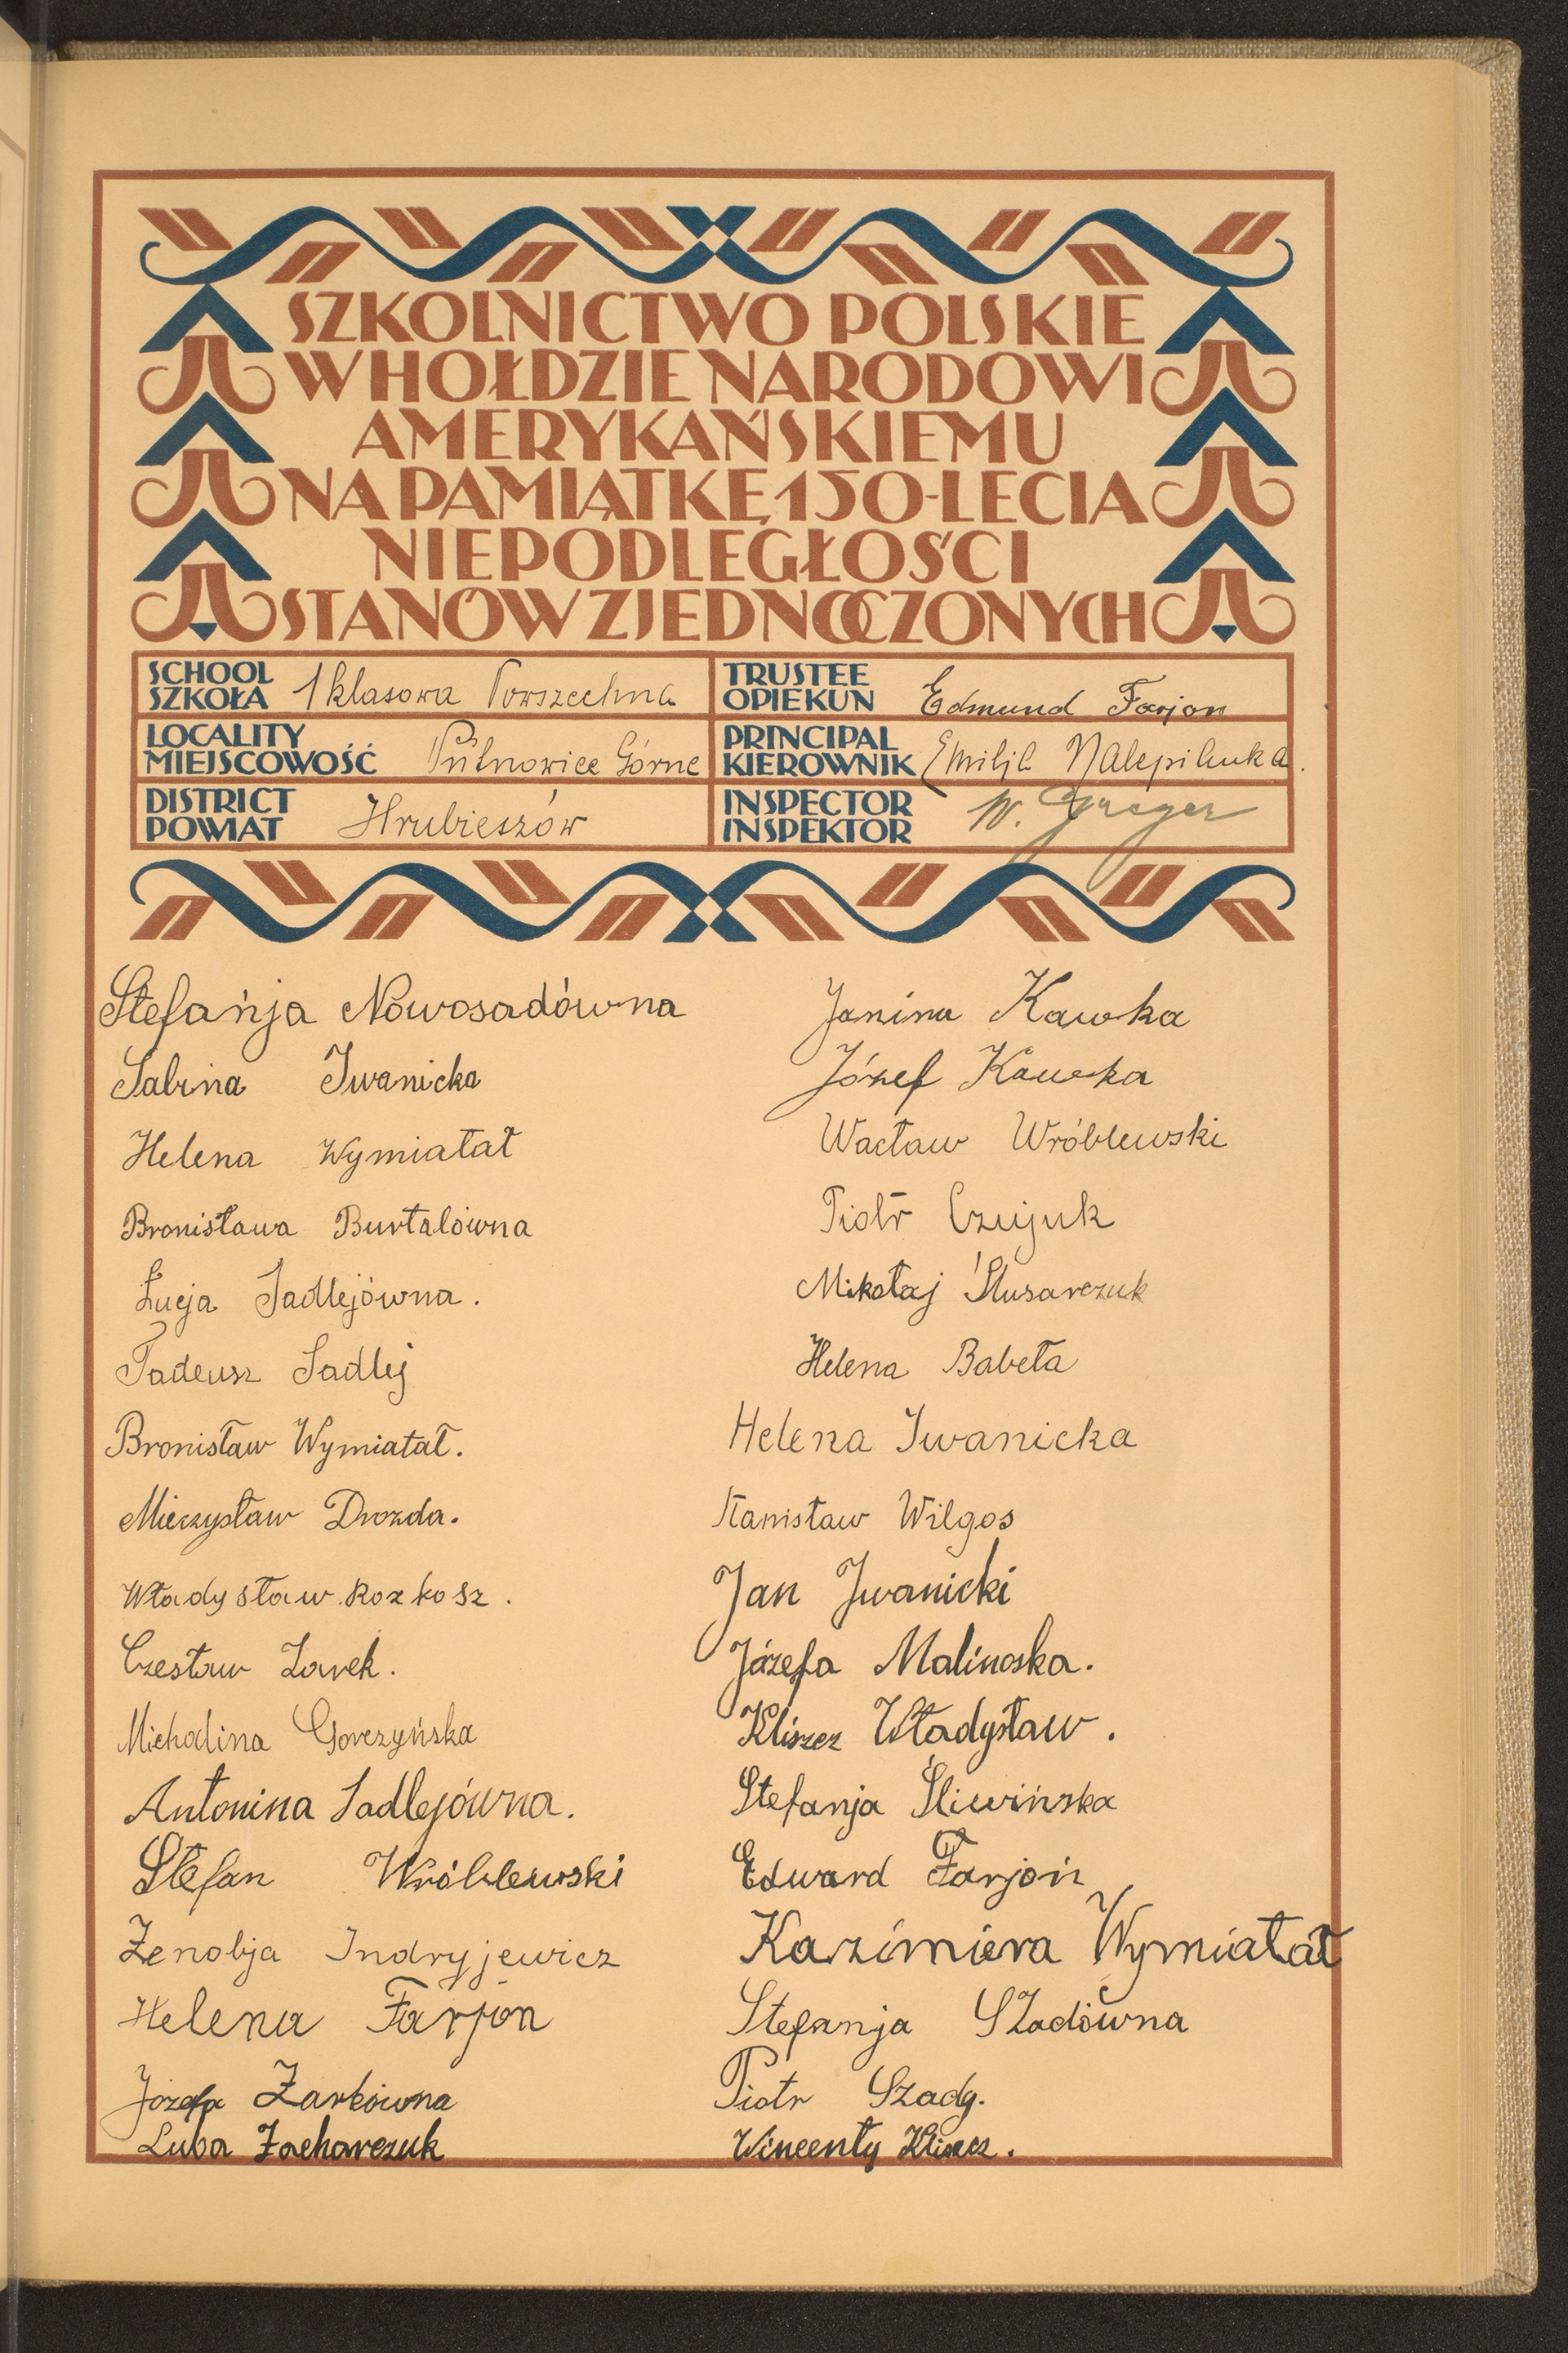 SZKOLNICTWO POLSKIE
W HOŁDZIE NARODOWI
AMERYKAŃSKIEMU
NA PAMIĄTKĘ 150-LECIA
NIEPODLEGŁOŚCI
STANÓW ZJEDNOCZONYCH
SCHOOL
SZKOŁA 1 klasowa Powszechna
TRUSTEE
OPIEKUN Edmund Farjon
LOCALITY
MIEJSCOWOŚĆ Górne
PRINCIPAL
KIEROWNIK Emilja
DISTRICT
POWIAT Hrubieszów
INSPECTOR
INSPEKTOR W.
Stefańja Nowosadówna
Sabina Iwanicka
Helena Wymiatał
Bronisława Burtalówna
Łucja Sadlejówna.
Tadeusz Sadlej
Bronisław Wymiatał.
Mieczysław Drozda.
Władysław Rozkosz.
Czesław Żarek.
Michalina Gorczyńska
Antonina Sadlejówna.
Stefan Wróblewski
Zenobja Indryjewicz
Helena Farjon
Józefa Żarkówna
Luba Zacharczuk
Janina Kawka
Józef Kawka
Wacław Wróblewski
Piotr Czujuk
Mikołaj Ślusarczuk
Helena Babeła
Helena Iwanicka
Stanisław Wilgos
Jan Iwanicki
Józefa Malinoska.
Kliszcz Władysław.
Stefanja Śliwińska
Edward Farjoń
Kazimiera Wymiatał
Stefanja SZadówna
Piotr Szady.
Wincenty Kliszcz.